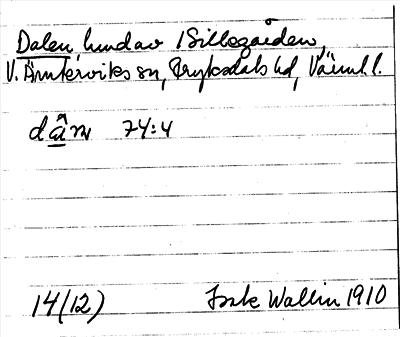 Dalen, lundav 1 Sillegården,
V. Ämterviks sn, Fryksdals hd, Värml. l.
dâm 74:4
14(12) Isak Wallin 1910